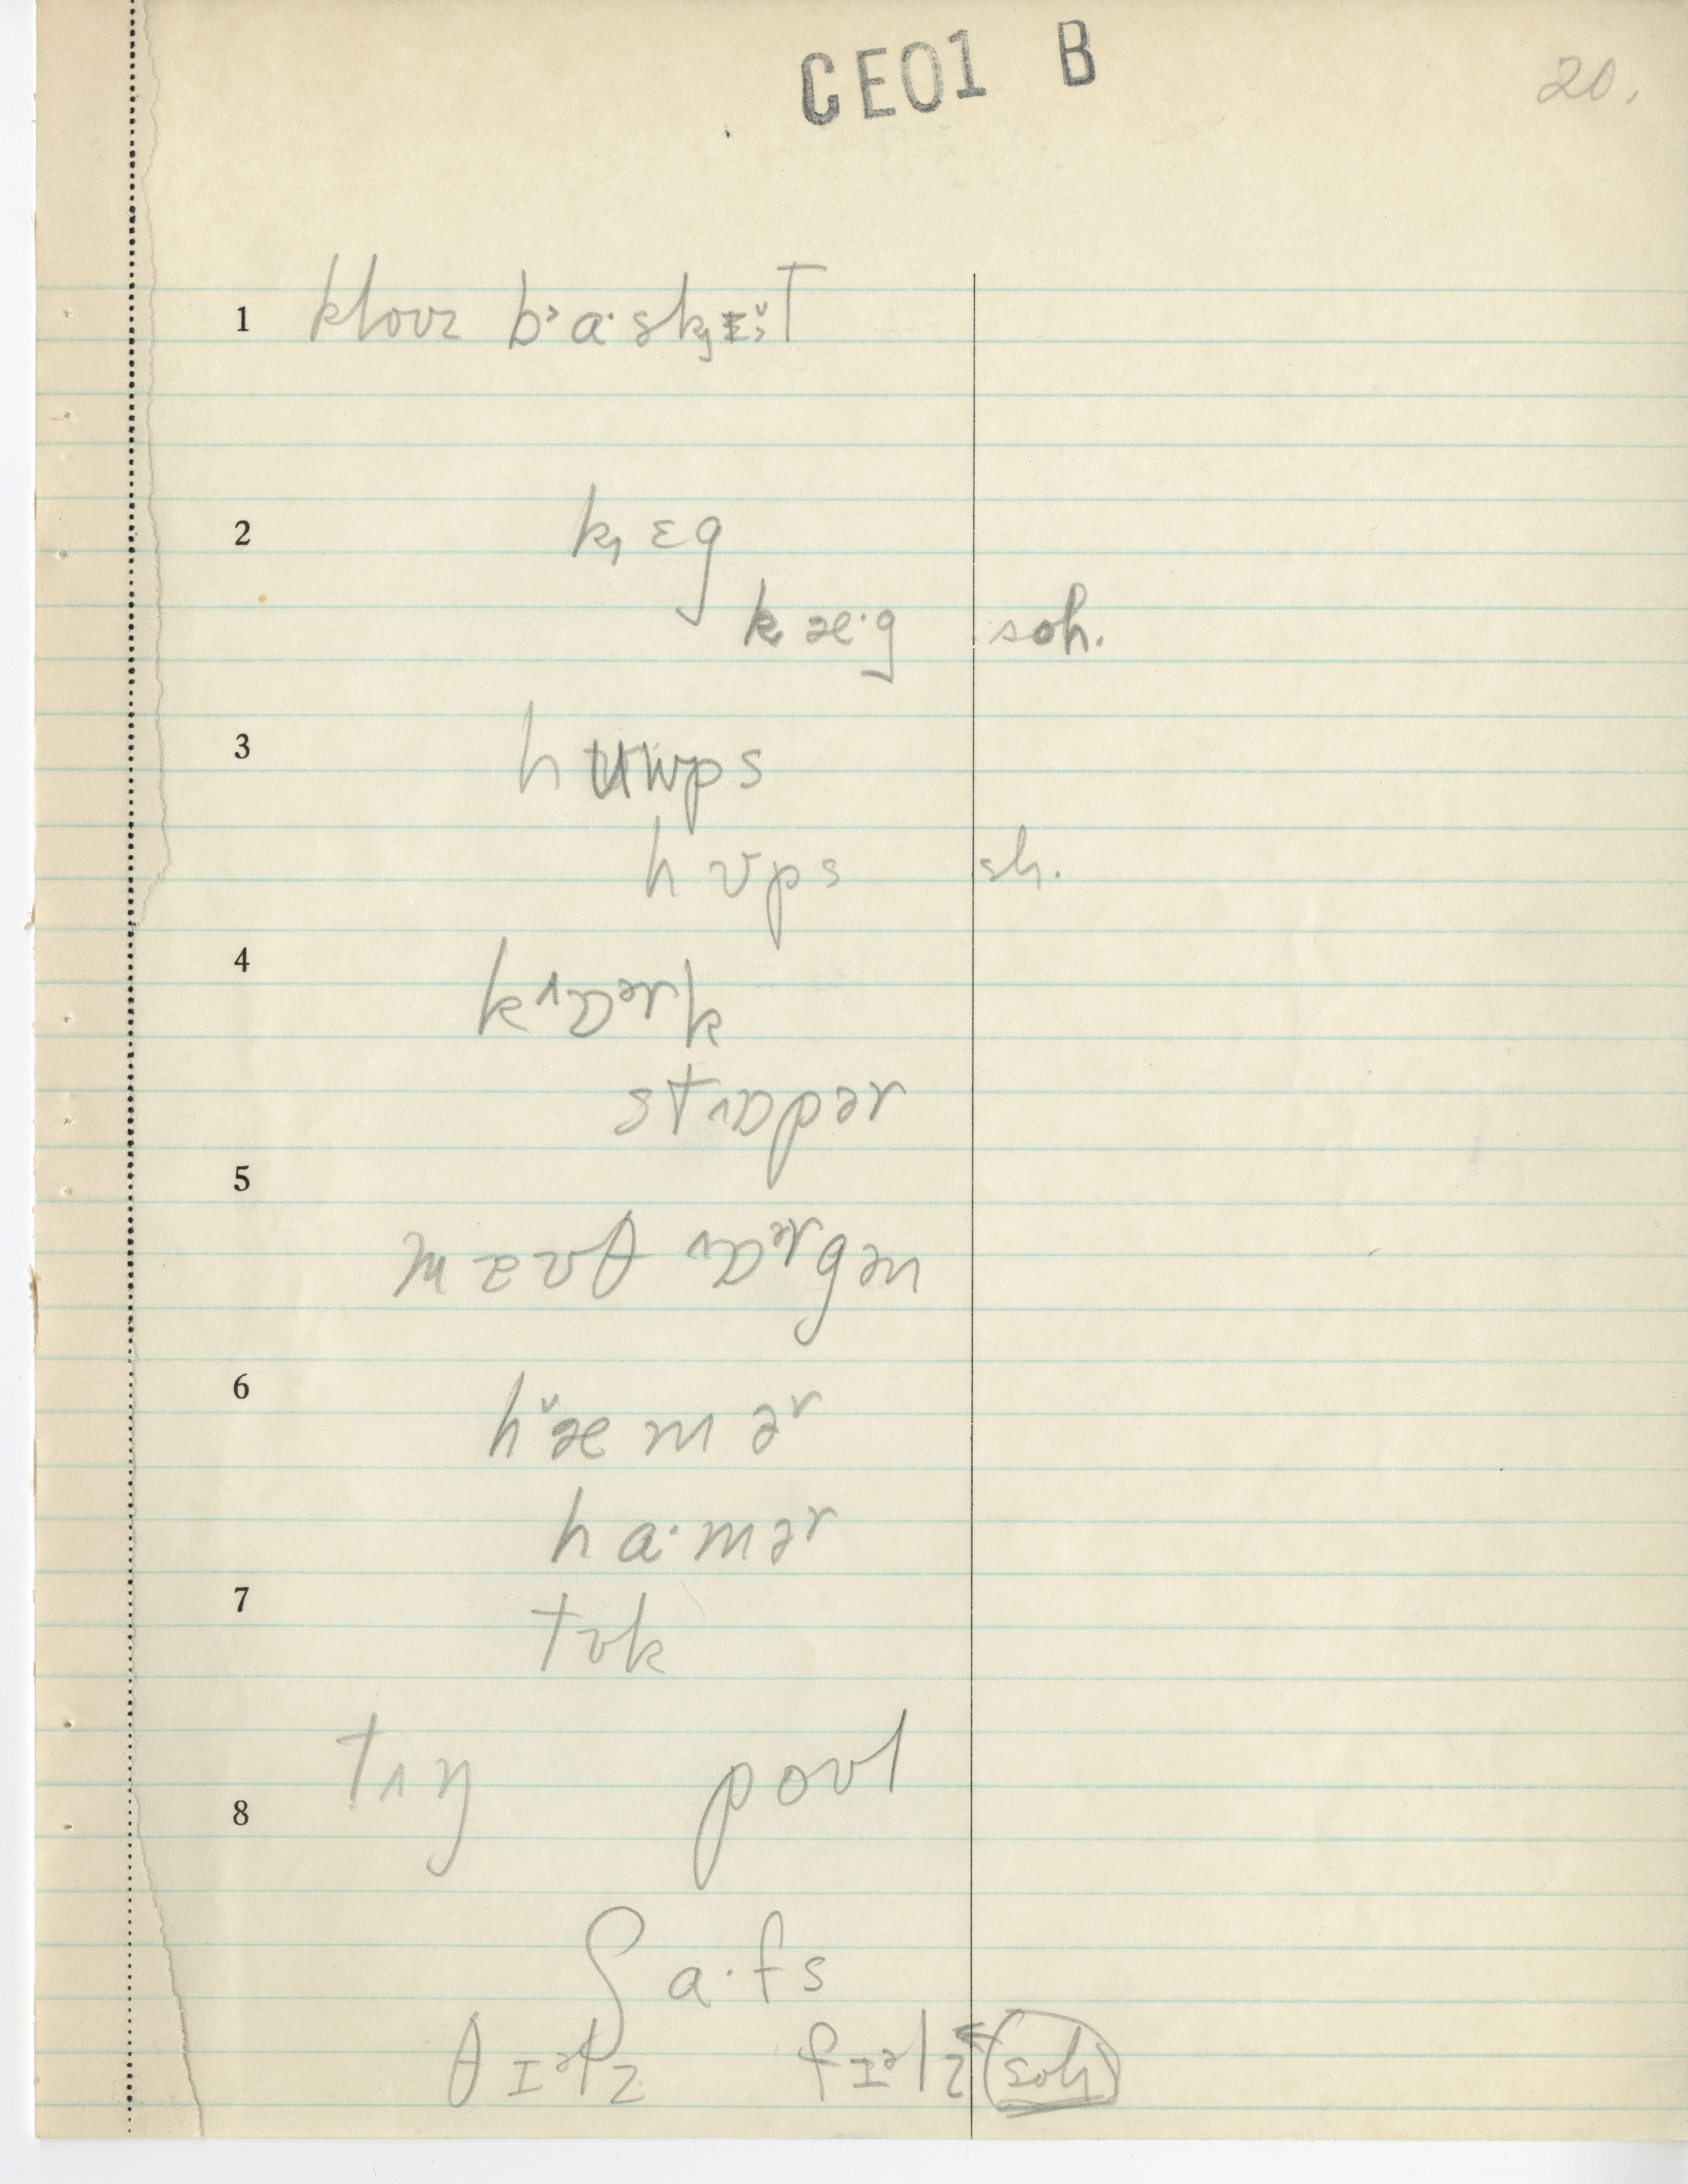 CE01 B
20.
1 kloʊz b˃a·sk̟ɪ̆t
2 k̟ɛg
kæ·g soh.
3 hʊps
hʊps sh.
4 kɒək
stɒpər
5 maʊθ ɒrgən
6 hæ̆mər
ha·mər
7 tʊk
tʌŋ poʊl
8
ʃa·fs
θɪəlz fɪəlz (soh)